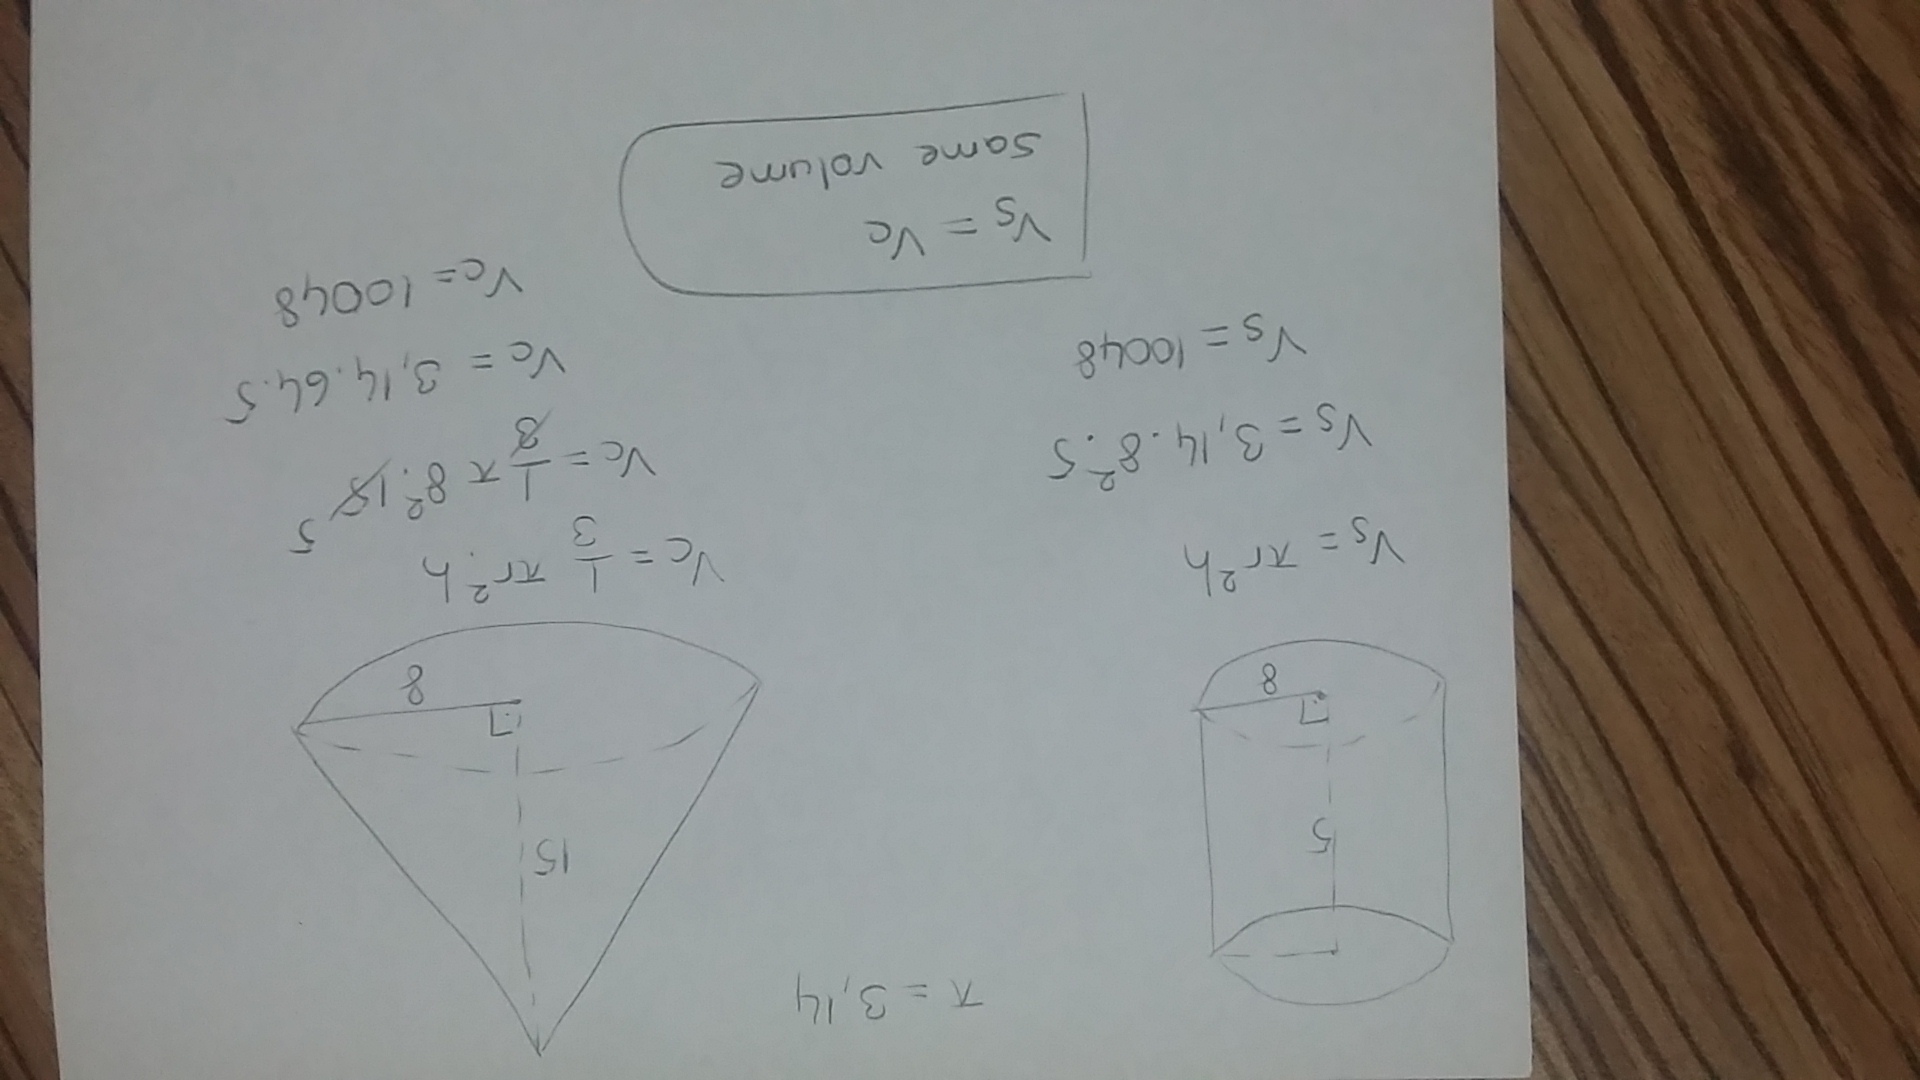 π = 3,14
5
8
V_S = πr²h
V_S = 3,14 . 8² . 5
V_S = 10048
15
8
V_C = 1/3 πr².h
V_C = 1/3 π 8² . 15 5
V_C = 3,14 . 64 . 5
V_C = 10048
V_S = V_C
same volume